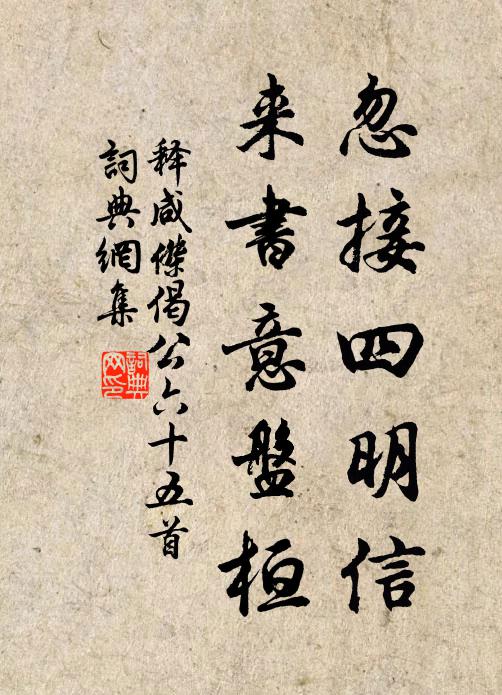 忽接四明信
来書意盤桓
释咸傑偈公六十五首
詞典網集
詞典网印